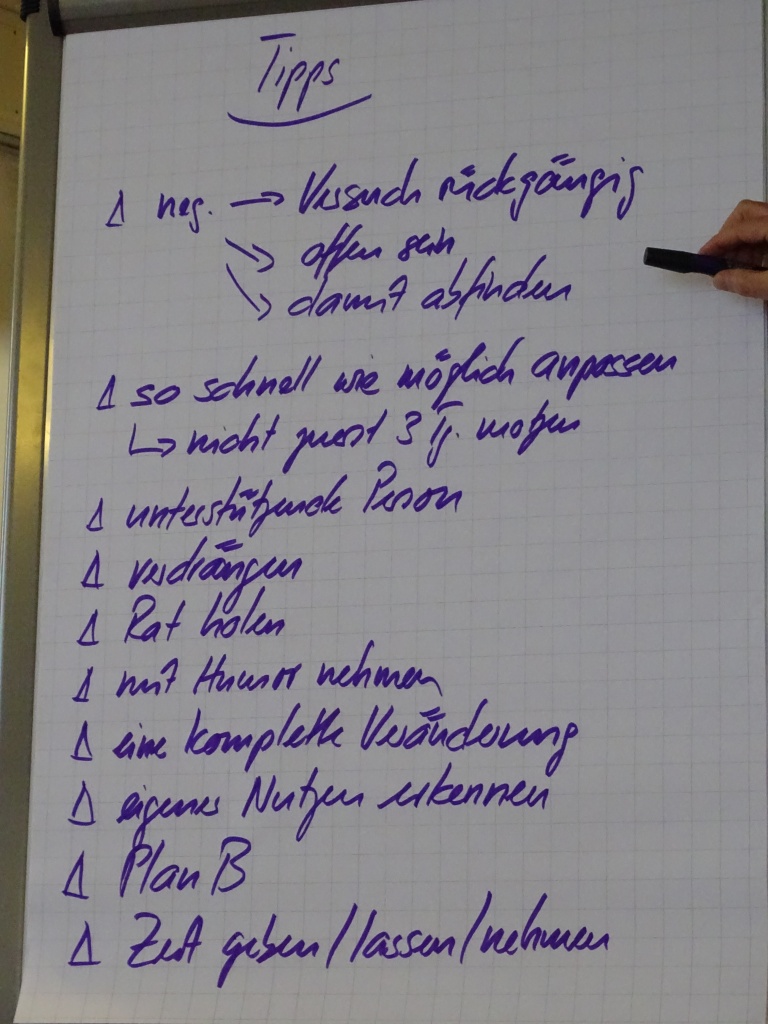 Tipps
Δ neg. → Versuch rückgängig
→ offen sein
→ damit abfinden
Δ so schnell wie möglich anpassen
↳ nicht zuerst 3 Tg. motzen
Δ unterstützende Person
Δ verdrängen
Δ Rat holen
Δ mit Humor nehmen
Δ eine komplette Veränderung
Δ eigenes Nutzen erkennen
Δ Plan B
Δ Zeit geben/lassen/nehmen